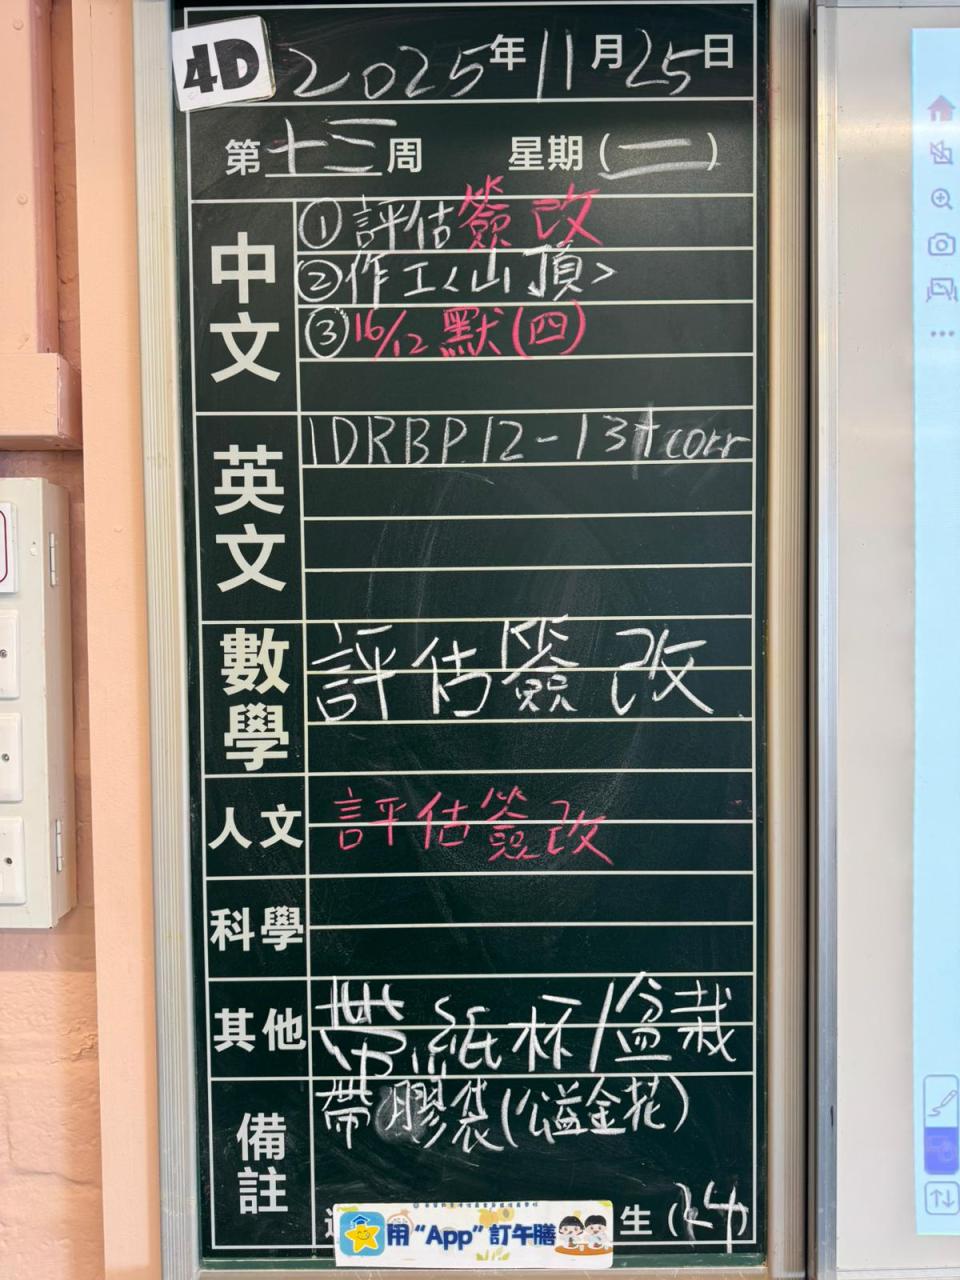 4D 2025年11月25日
第十三周 星期(二)
中文
①評估簽改
②作工<山頂>
③16/12 默(四)
英文
1DRBP.12-13+corr
數學
評估簽改
人文
評估簽改
科學
其他
帶紙杯/盆栽
備註
帶膠袋(公益金花)
用“App”訂午膳
生(24)